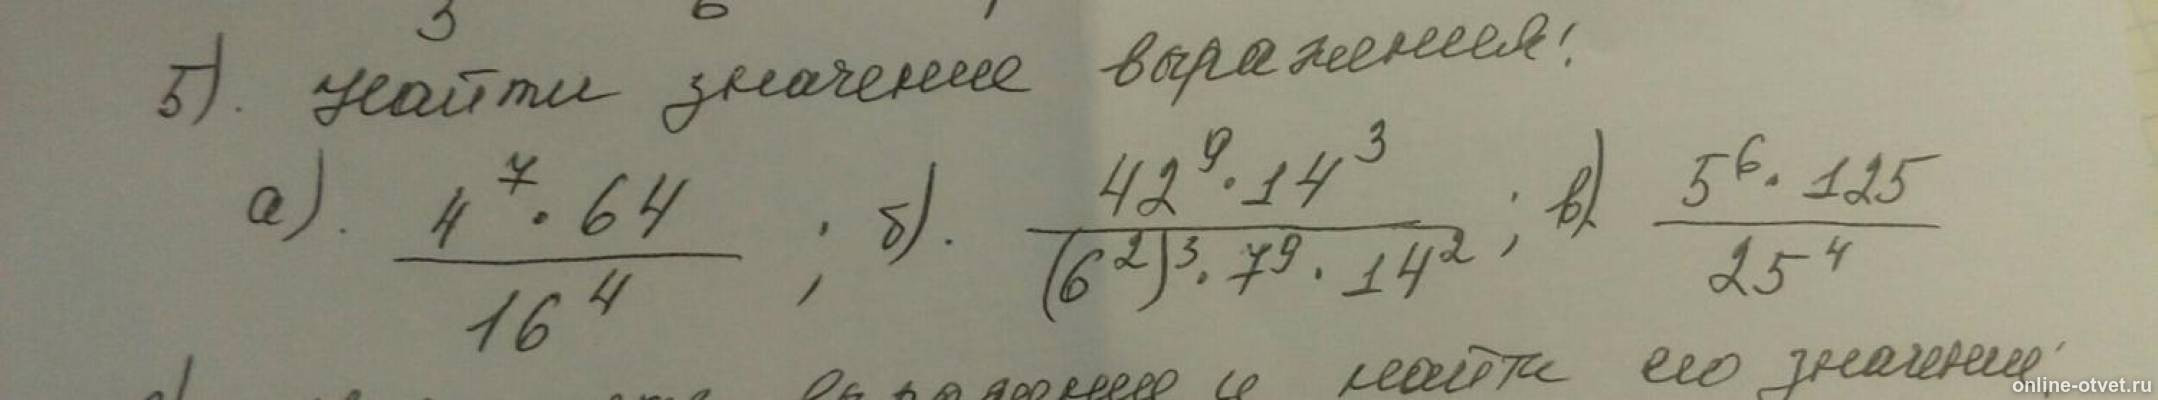 3 6
5). Найти значение выражения:
а). 4^7 · 64 / 16^4 ; б). 42^9 · 14^3 / (6^2)^3 · 7^9 · 14^2 ; в) 5^6 · 125 / 25^4
и найти его значение:
online-otvet.ru